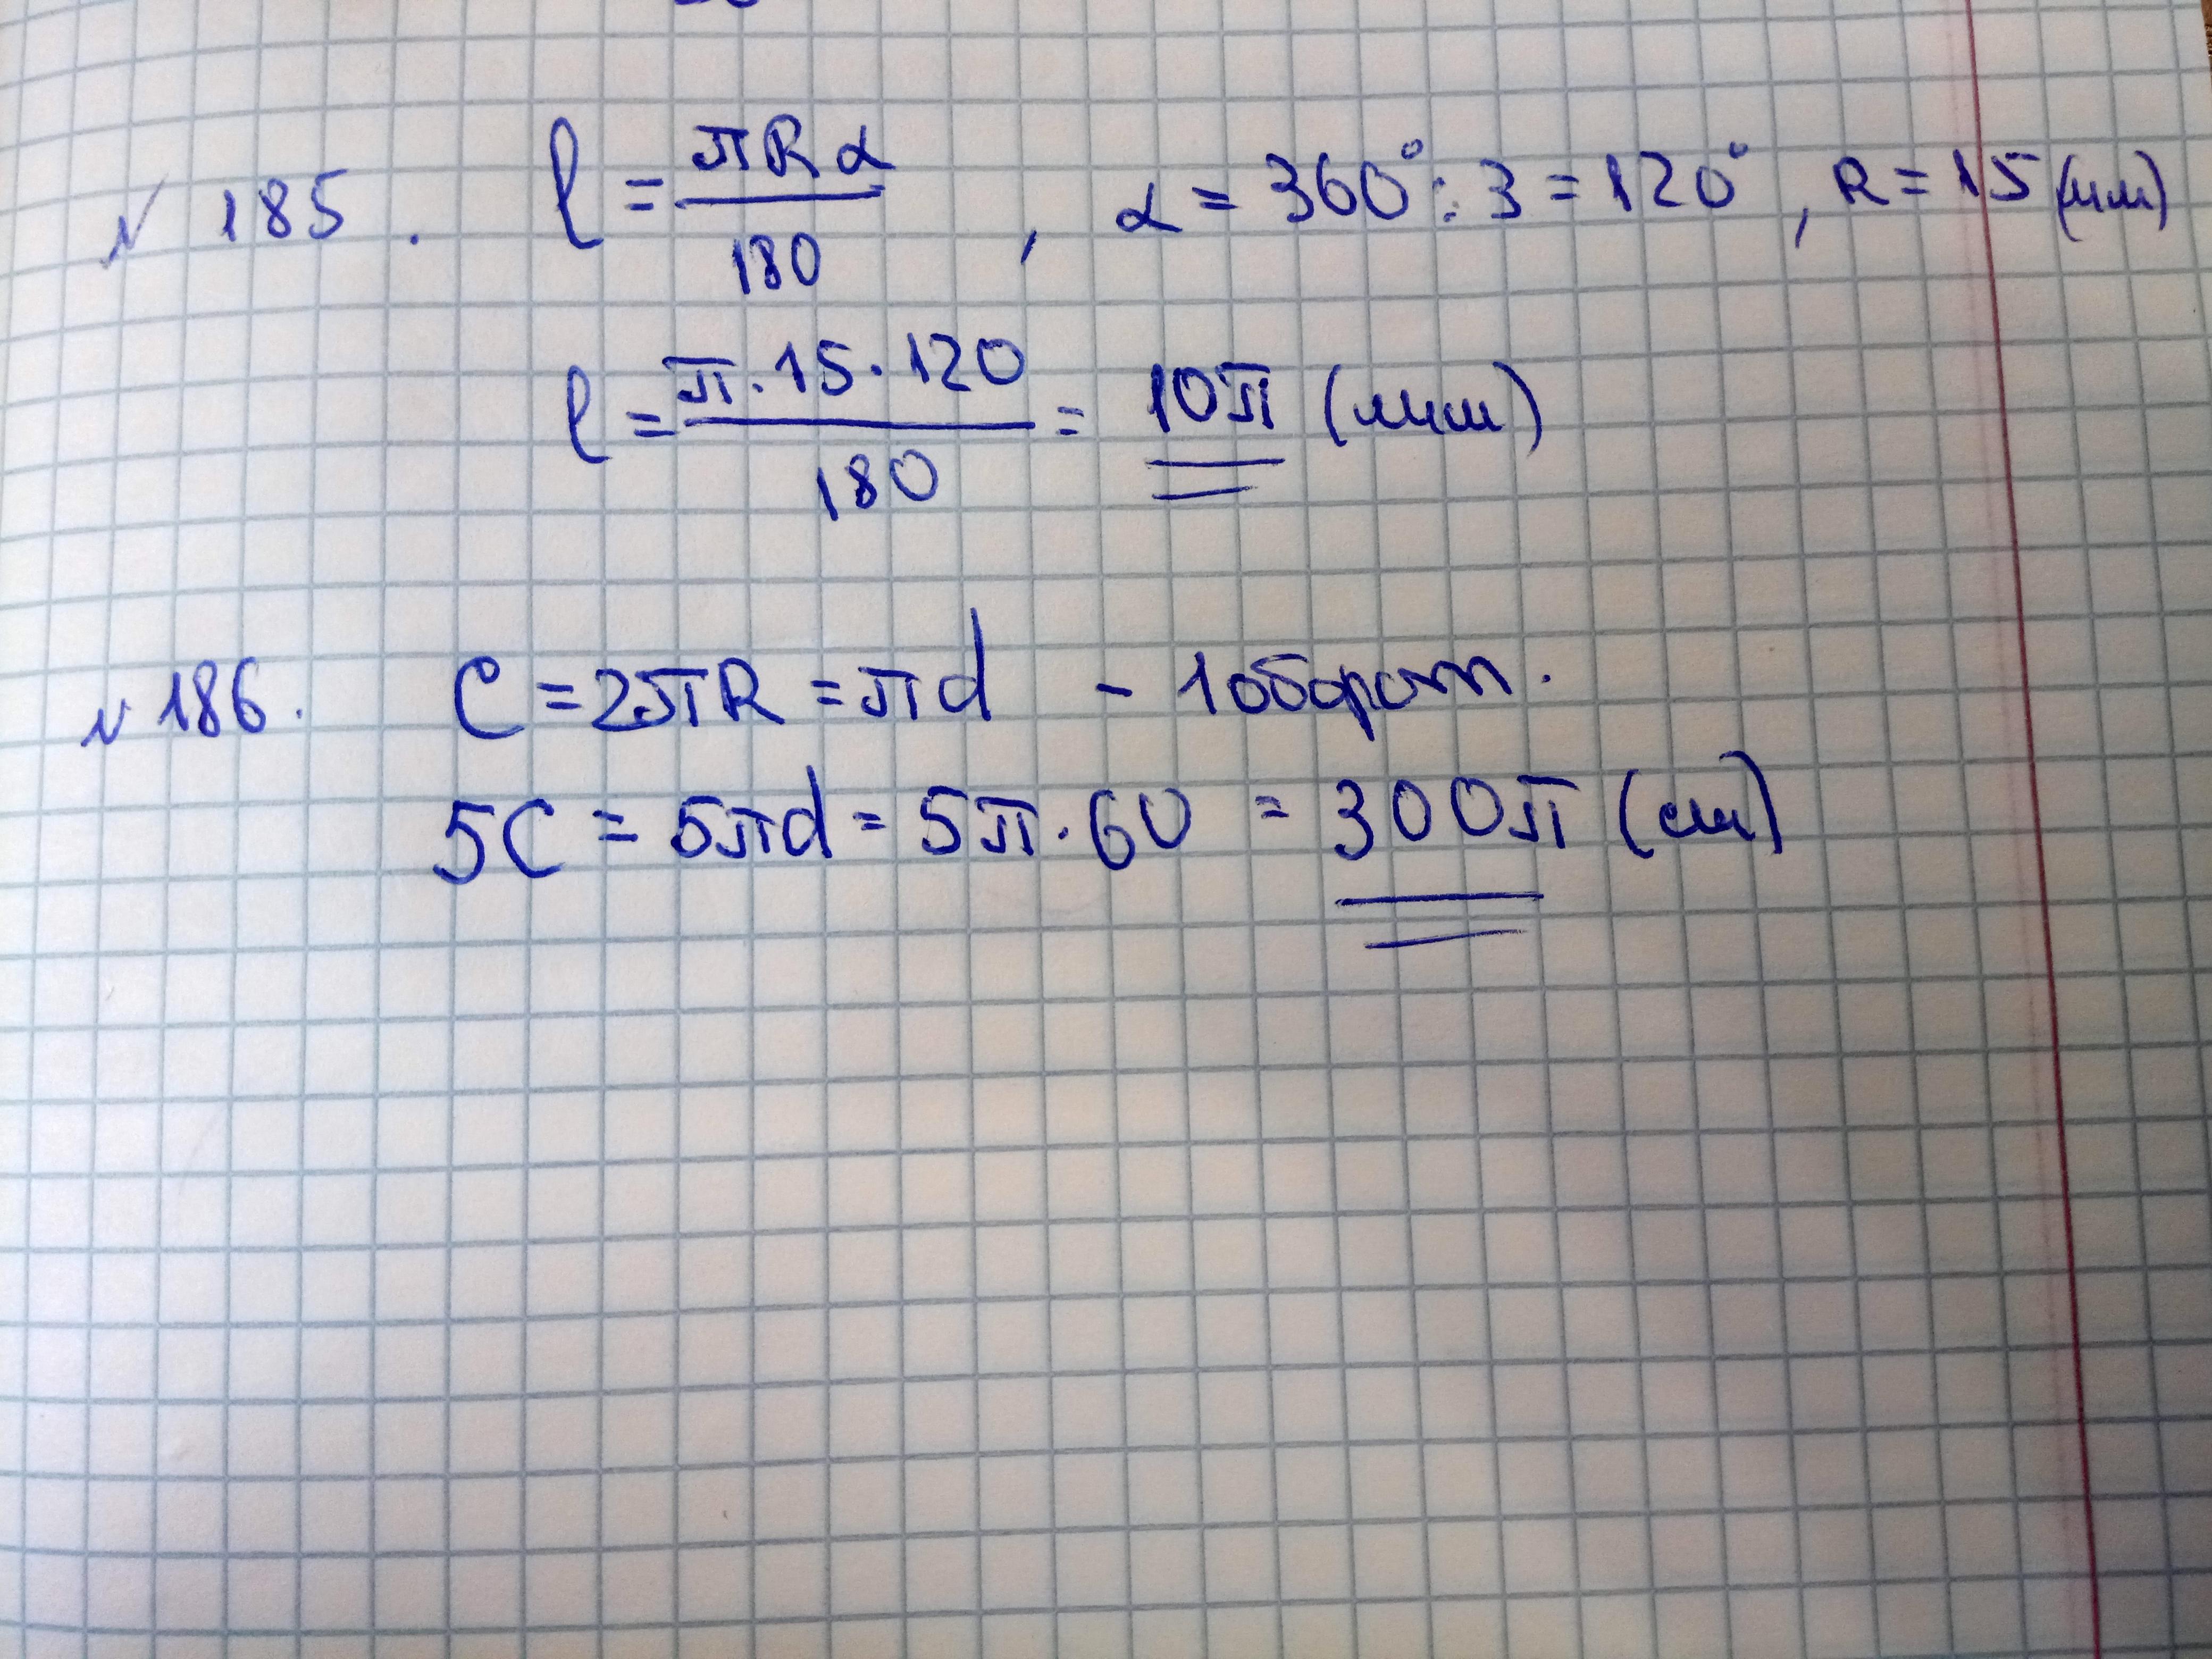 № 185. l = πRα/180, α = 360° : 3 = 120°, R = 15 (мм)
l = π·15·120/180 = 10π (мм)
№ 186. C = 2πR = πd - 1 оборот.
5C = 5πd = 5π·60 = 300π (см)